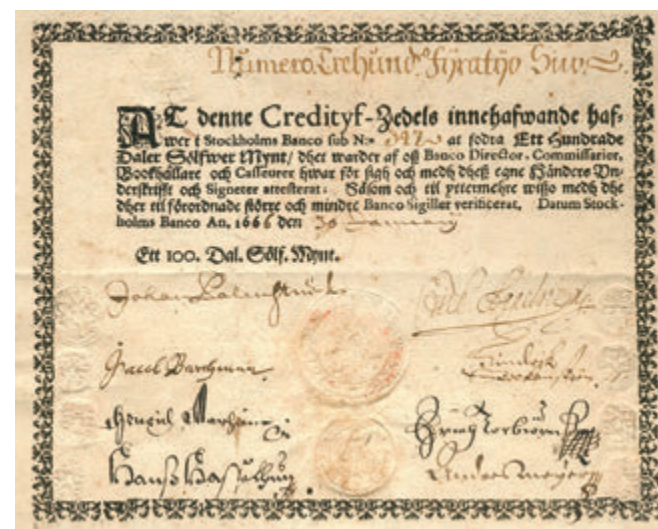 Numero Trehund. fÿratÿo Siu.
AT denne Credityf-Zedels innehafwande haf-
wer i Stockholms Banco sub N:o 347 at fodra Ett Hundrade
Daler Sölfwer Mynt/ dher warder af oß Banco Director, Commissarier,
Bookhållare och Casseurer hwar för sigh och medh dheß egne Händers Vn-
derskrift och Signeter attesterat: Såsom och til yttermehre wißo medh dhe
dher til förordnade större och mindre Banco Sigiller verificerat. Datum Stock-
holms Banco An. 1666 den 30 January
Ett 100. Dal. Sölf. Mynt.
Johan Palmstruch
Hindrich
Hans
Anders Meyer